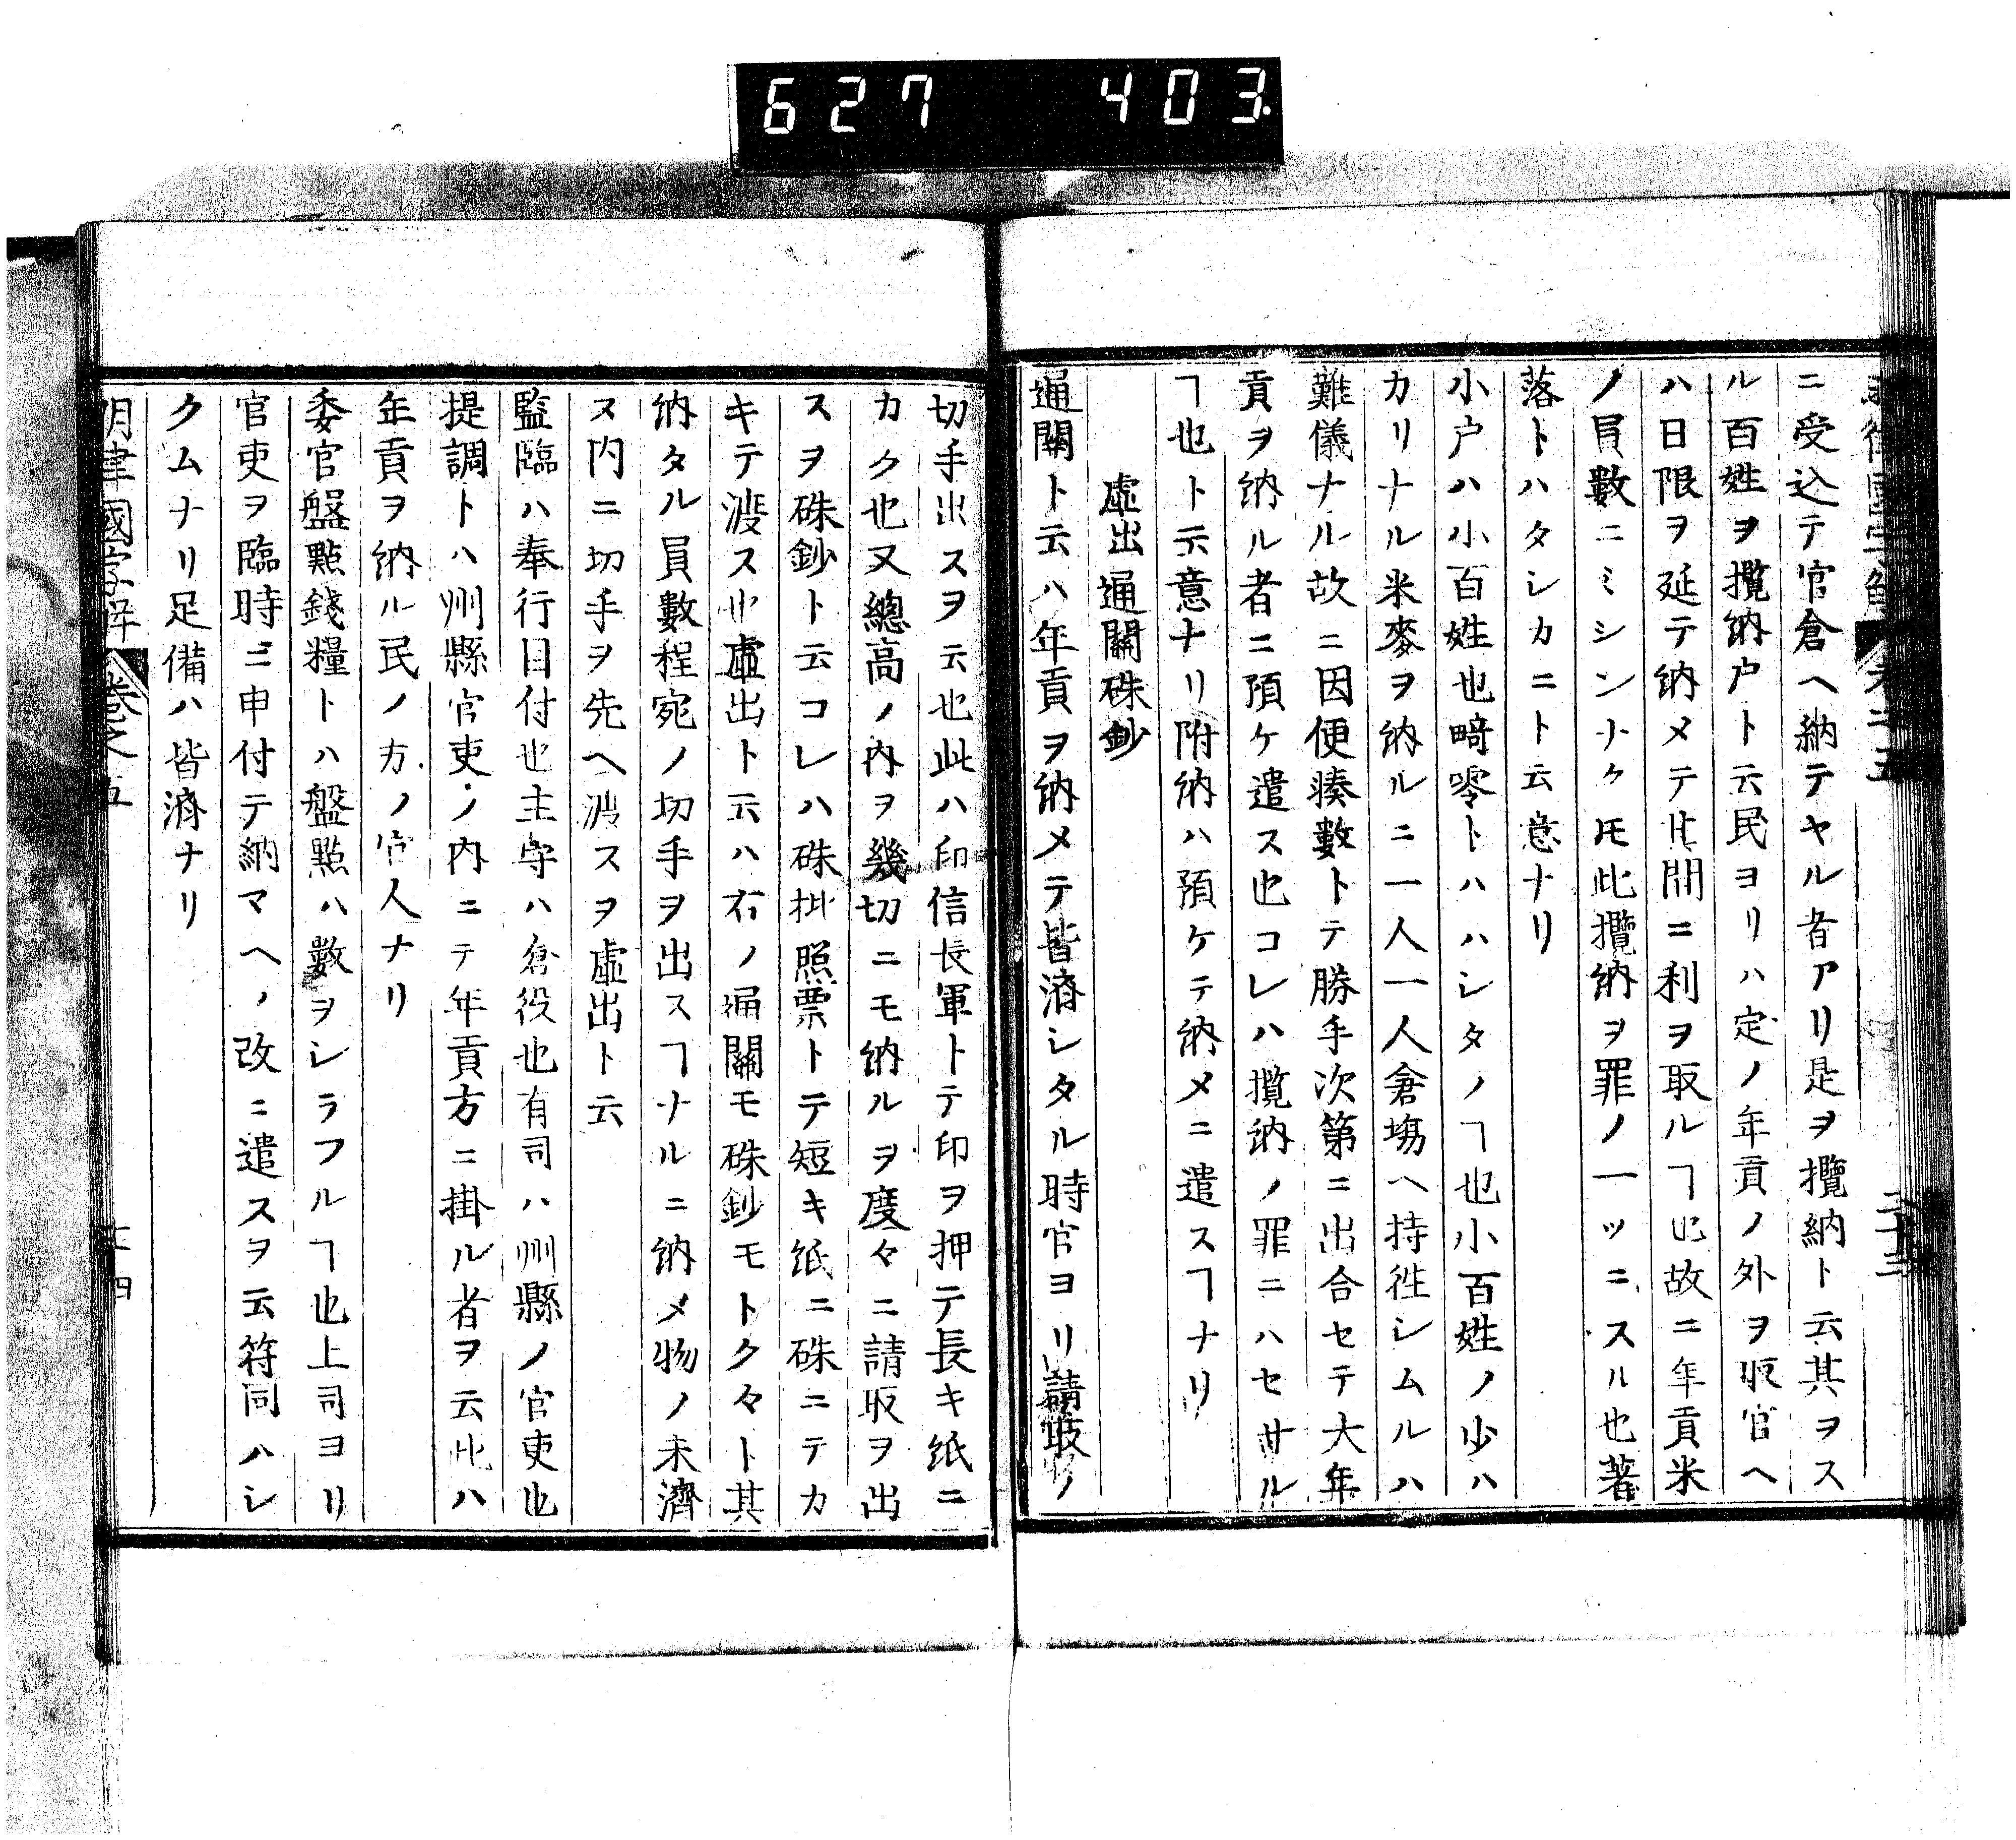 627 403
ニ受込テ官倉ヘ納テヤル者アリ是ヲ攬納ト云其ヲス
ル百姓ヲ攬納戸ト云民ヨリハ定ノ年貢ノ外ヲ取官ヘ
ハ日限ヲ延テ納メテ其間ニ利ヲ取ルヿ也故ニ年貢米
ノ員數ニミシンナケレ𪜈此攬納ヲ罪ノ一ツニスル也著
落トハタシカニト云意ナリ
小戸ハ小百姓也畸零トハハシタノヿ也小百姓ノ少ハ
カリナル米麥ヲ納ルニ一人一人倉場ヘ持徃シムルハ
難儀ナル故ニ因便湊數トテ勝手次第ニ出合セテ大年
貢ヲ納ル者ニ預ケ遣ス也コレハ攬納ノ罪ニハセサル
ヿ也ト示意ナリ附納ハ預ケテ納メニ遣スヿナリ
虛出通關硃鈔
通關ト云ハ年貢ヲ納メテ皆濟シタル時官ヨリ請取ノ
切手出スヲ云也此ハ印信長單トテ印ヲ押テ長キ紙ニ
カク也又總高ノ内ヲ幾切ニモ納ルヲ度々ニ請取ヲ出
スヲ硃鈔ト云コレハ硃批照票トテ短キ紙ニ硃ニテカ
キテ渡ス也虛出ト云ハ右ノ通關モ硃鈔モトクヽト其
納タル員數程宛ノ切手ヲ出スヿナルニ納メ物ノ未濟
ス内ニ切手ヲ先ヘ渡スヲ虛出ト云
監臨ハ奉行目付也主守ハ倉役也有司ハ州縣ノ官吏也
提調トハ州縣官吏ノ内ニテ年貢方ニ掛ル者ヲ云此ハ
年貢ヲ納ル民ノ方ノ官人ナリ
委官盤點錢糧トハ盤點ハ數ヲシラフルヿ也上司ヨリ
官吏ヲ臨時ニ申付テ納マヘノ改ニ遣スヲ云符同ハシ
クムナリ足備ハ皆濟ナリ
明律國字解 卷之五